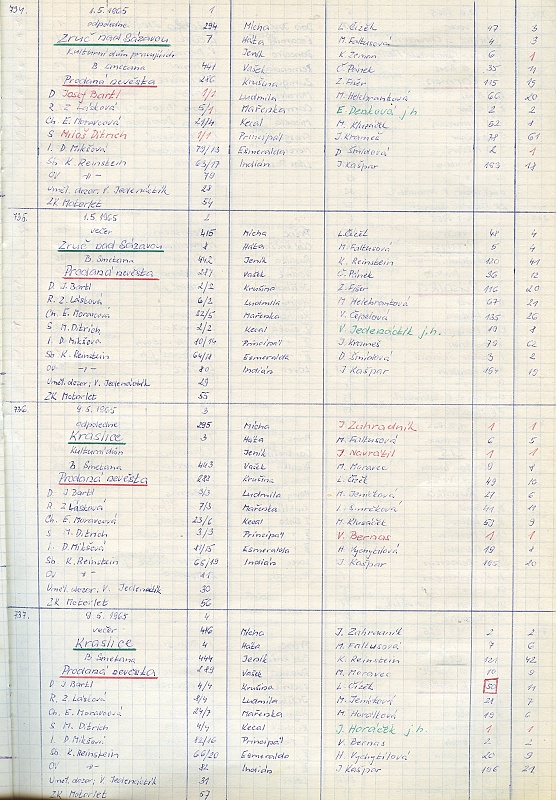 734. 1.5.1965 1
odpoledne 294 Mícha L. Čížek 47 3
Zruč nad Sázavou 7 Háta M. Faltusová 4 3
Kulturní dům pracujících Jeník K. Zeman 6 1
B. Smetana 441 Vašek Č. Pánek 35 11
Prodaná nevěsta 286 Krušina Z. Fišer 115 19
D Josef Bartl 1/1 Ludmila M. Helebrantková 66 20
R Z. Lásková 5/1 Mařenka E. Děpková j.h. 2 2
Ch. E. Moravcová 21/4 Kecal M. Klusáček 52 1
S Miloš Ditrich 1/1 Principál J. Krameš 78 61
I. D. Mikšová 79/13 Esmeralda D. Šmídlová 2 1
Sb K. Reinstein 63/17 Indián J. Kašpar 153 18
OV -"- 79
Uměl. dozor, V. Jedenáctík 28
ZK Motorlet 54
735. 1.5.1965 2
večer 415 Mícha L. Čížek 48 4
Zruč nad Sázavou 8 Háta M. Faltusová 5 4
B. Smetana 442 Jeník K. Reinstein 120 41
Prodaná nevěsta 287 Vašek Č. Pánek 36 12
D J. Bartl 2/2 Krušina Z. Fišer 116 20
R. Z. Lásková 6/2 Ludmila M. Helebrantková 67 21
Ch. E. Moravcová 22/5 Mařenka V. Čepelová 135 26
S M. Ditrich 2/2 Kecal V. Jedenáctík j.h. 19 1
I. D. Mikšová 10/14 Principál J. Krameš 79 62
Sb K. Reinstein 64/18 Esmeralda D. Šmídlová 3 2
OV -"- 80 Indián J. Kašpar 154 19
Uměl. dozor, V. Jedenáctík 29
ZK Motorlet 55
736 9.5.1965 3
odpoledne 295 Mícha J. Zahradník 1 1
Kraslice 3 Háta M. Faltusová 6 5
Kulturní dům Jeník J. Navrátil 1 1
B. Smetana 443 Vašek M. Moravec 9 8
Prodaná nevěsta 288 Krušina L. Čížek 49 10
D J. Bartl 3/3 Ludmila M. Jeníčková 27 6
R Z. Lásková 7/3 Mařenka 41 11
Ch. E. Moravcová 23/6 Kecal M. Klusáček 53 9
S M. Ditrich 3/3 Principál V. Bernas 1 1
I. D. Mikšová 11/15 Esmeralda H. Vychytilová 19 1
Sb K. Reinstein 65/19 Indián J. Kašpar 155 20
OV -"- 81
Uměl. dozor, V. Jedenáctík 30
ZK Motorlet 56
737. 9.5.1965 4
večer 416 Mícha J. Zahradník 2 2
Kraslice 4 Háta M. Faltusová 7 6
B. Smetana 444 Jeník K. Reinstein 121 42
Prodaná nevěsta 289 Vašek M. Moravec 10 9
D J. Bartl 4/4 Krušina L. Čížek 50 11
R. Z. Lásková 8/4 Ludmila M. Jeníčková 28 7
Ch. E. Moravcová 24/7 Mařenka M. Horálková 19 6
S M. Ditrich 4/4 Kecal J. Horáček j.h. 1 1
I. D. Mikšová 12/16 Principál V. Bernas 2 2
Sb. K. Reinstein 66/20 Esmeralda H. Vychytilová 20 9
OV -"- 82 Indián J. Kašpar 156 21
Uměl. dozor, V. Jedenáctík 31
ZK Motorlet 57